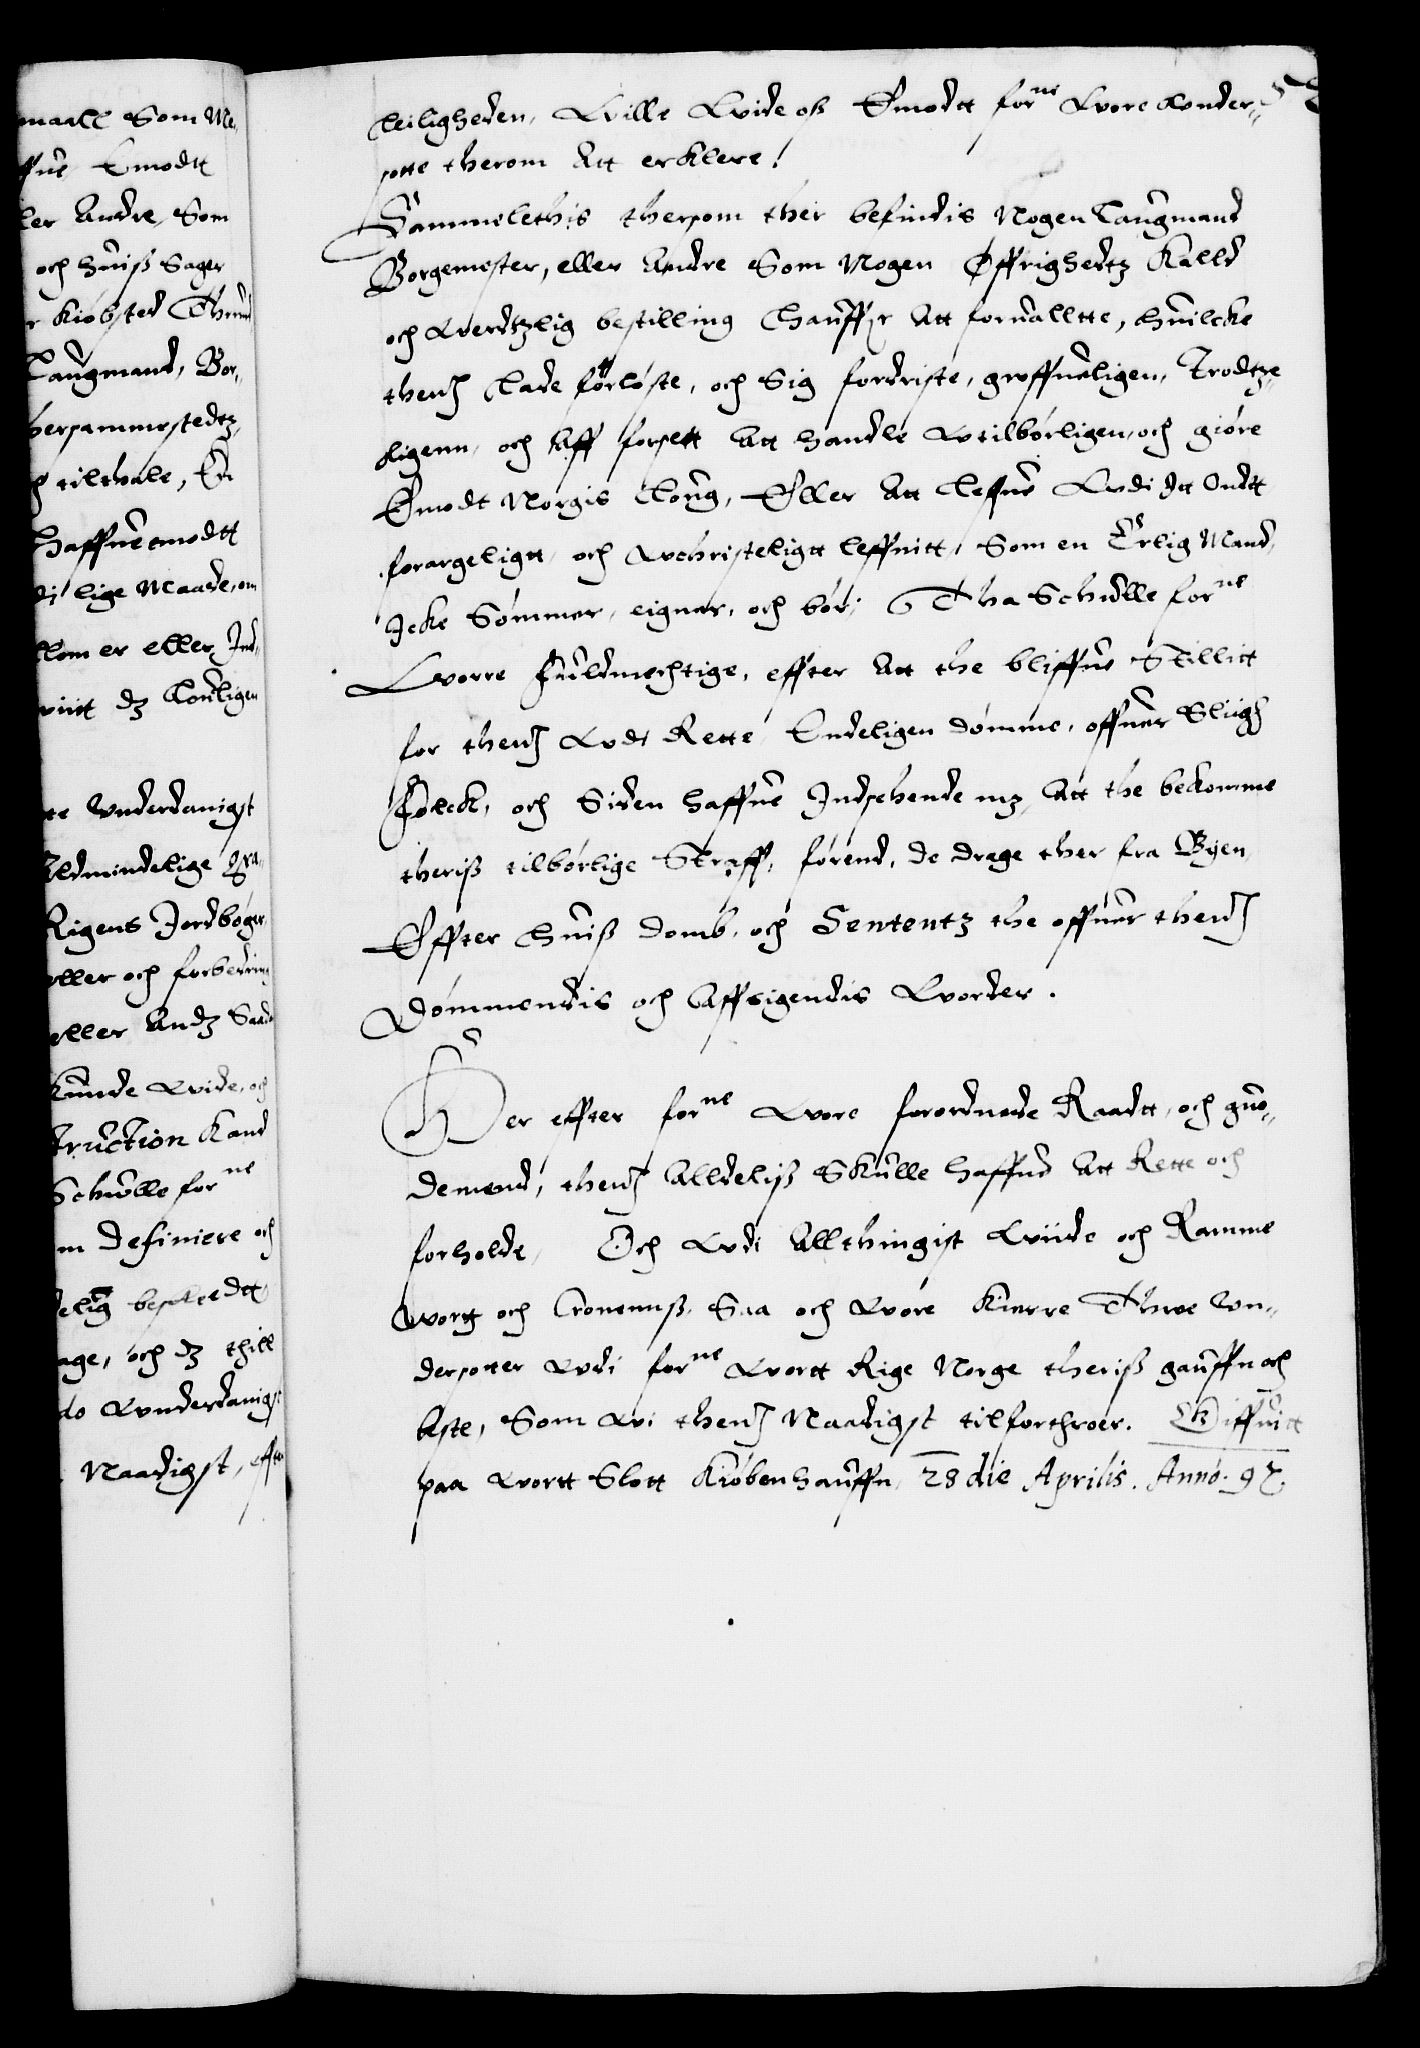 maall Som Me¬
ffue Emodtt
ler Andre, Som
och huiss Sager
r Kiöbsted Thrund
Laugmand, Bor¬
hersammestedtz,
tilthale, En
haffue emodtt
di lige Maade, om
llom er eller Ind¬
wiitt dz Louligen
te Vnderdanigst
Aldmindelige
Rigens Jordbøger
eller och forbedring
eller Andz
Kunde Wide, och
truction Kand
Schulle forne
m definiere och
delig beskeedtt
age, och dz thill
do Wnderdanigst
Naadigst, effter
leiligheden, Wille Wide oss Emodtt forne Wore Wnder¬
sotte therom Att erklere!
Sammeledhis thersom ther befindis Nogen Laugmand
Borgemester, eller Andre Som Nogen Øffrighedtz Kalld
och Werdtzlig bestilling haffuer Att foruallte, huilcke
thend Lade förlöste, och Sig fordriste, groffueligen, Trodtze¬
ligenn, och Aff forsett Att handle Wtilbörligen, och giöre
Emodt Norgis Loug, Eller Att leffue Wdi itt Ondtt
forargeligtt, och Wchristeligtt leffnitt, Som en Erlig Mand
Icke Sömmer, eigner, och bör; Tha Schulle forne
Worre Fuldmechtige, effter Att the bliffue Stillitt
for thend Wdi Rette Endeligen dömme, offuer Sliigh
Folck, och Siden haffue Indseende mz, Att the bekomme
theriss tilbörlige Straff, förend, de drage ther fra Byen,
Effter huiss domb, och Sententz the offuer thend
Dömmendis och Affsigendis Worder.
Her effter forne Wore forordnede Raadtt, och guo¬
demend, thend Alldeliss Skulle haffue Att Rette och
forholde, Och Wdi Allthingist Wiide och Ramme
Wortt och Cronenns, Saa och Wore Kierre Throe Wn¬
dersotter Wdi forne Wortt Rige Norge theriss gauffn och
beste, Som Wi thend Naadigst tilforthroer. Giffuitt
paa Wortt Slott Kiöbenhauffn, 28 die Aprilis. Anno. 97.